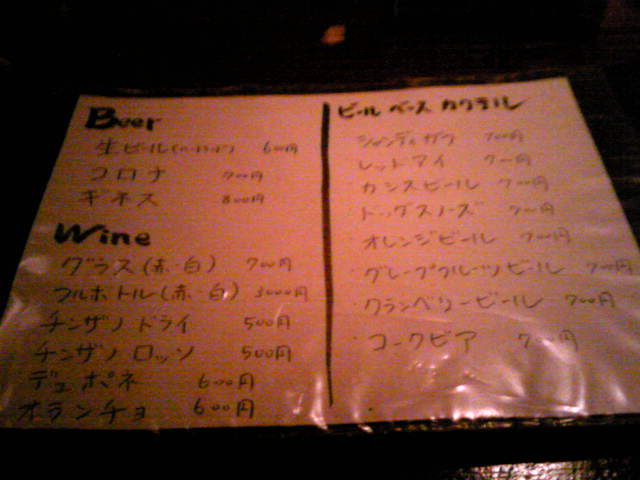 Beer
生ビール(ハートランド) 600円
コロナ 700円
ギネス 800円
Wine
グラス(赤・白) 700円
フルボトル(赤・白) 3000円
チンザノ ドライ 500円
チンザノ ロッソ 500円
デュボネ 600円
オランチョ 600円
ビール ベース カクテル
シャンディガフ 700円
レッドアイ 700円
カシスビール 700円
ドッグズノーズ 700円
オレンジビール 700円
グレープフルーツビール 700円
クランベリービール 700円
コークビア 700円